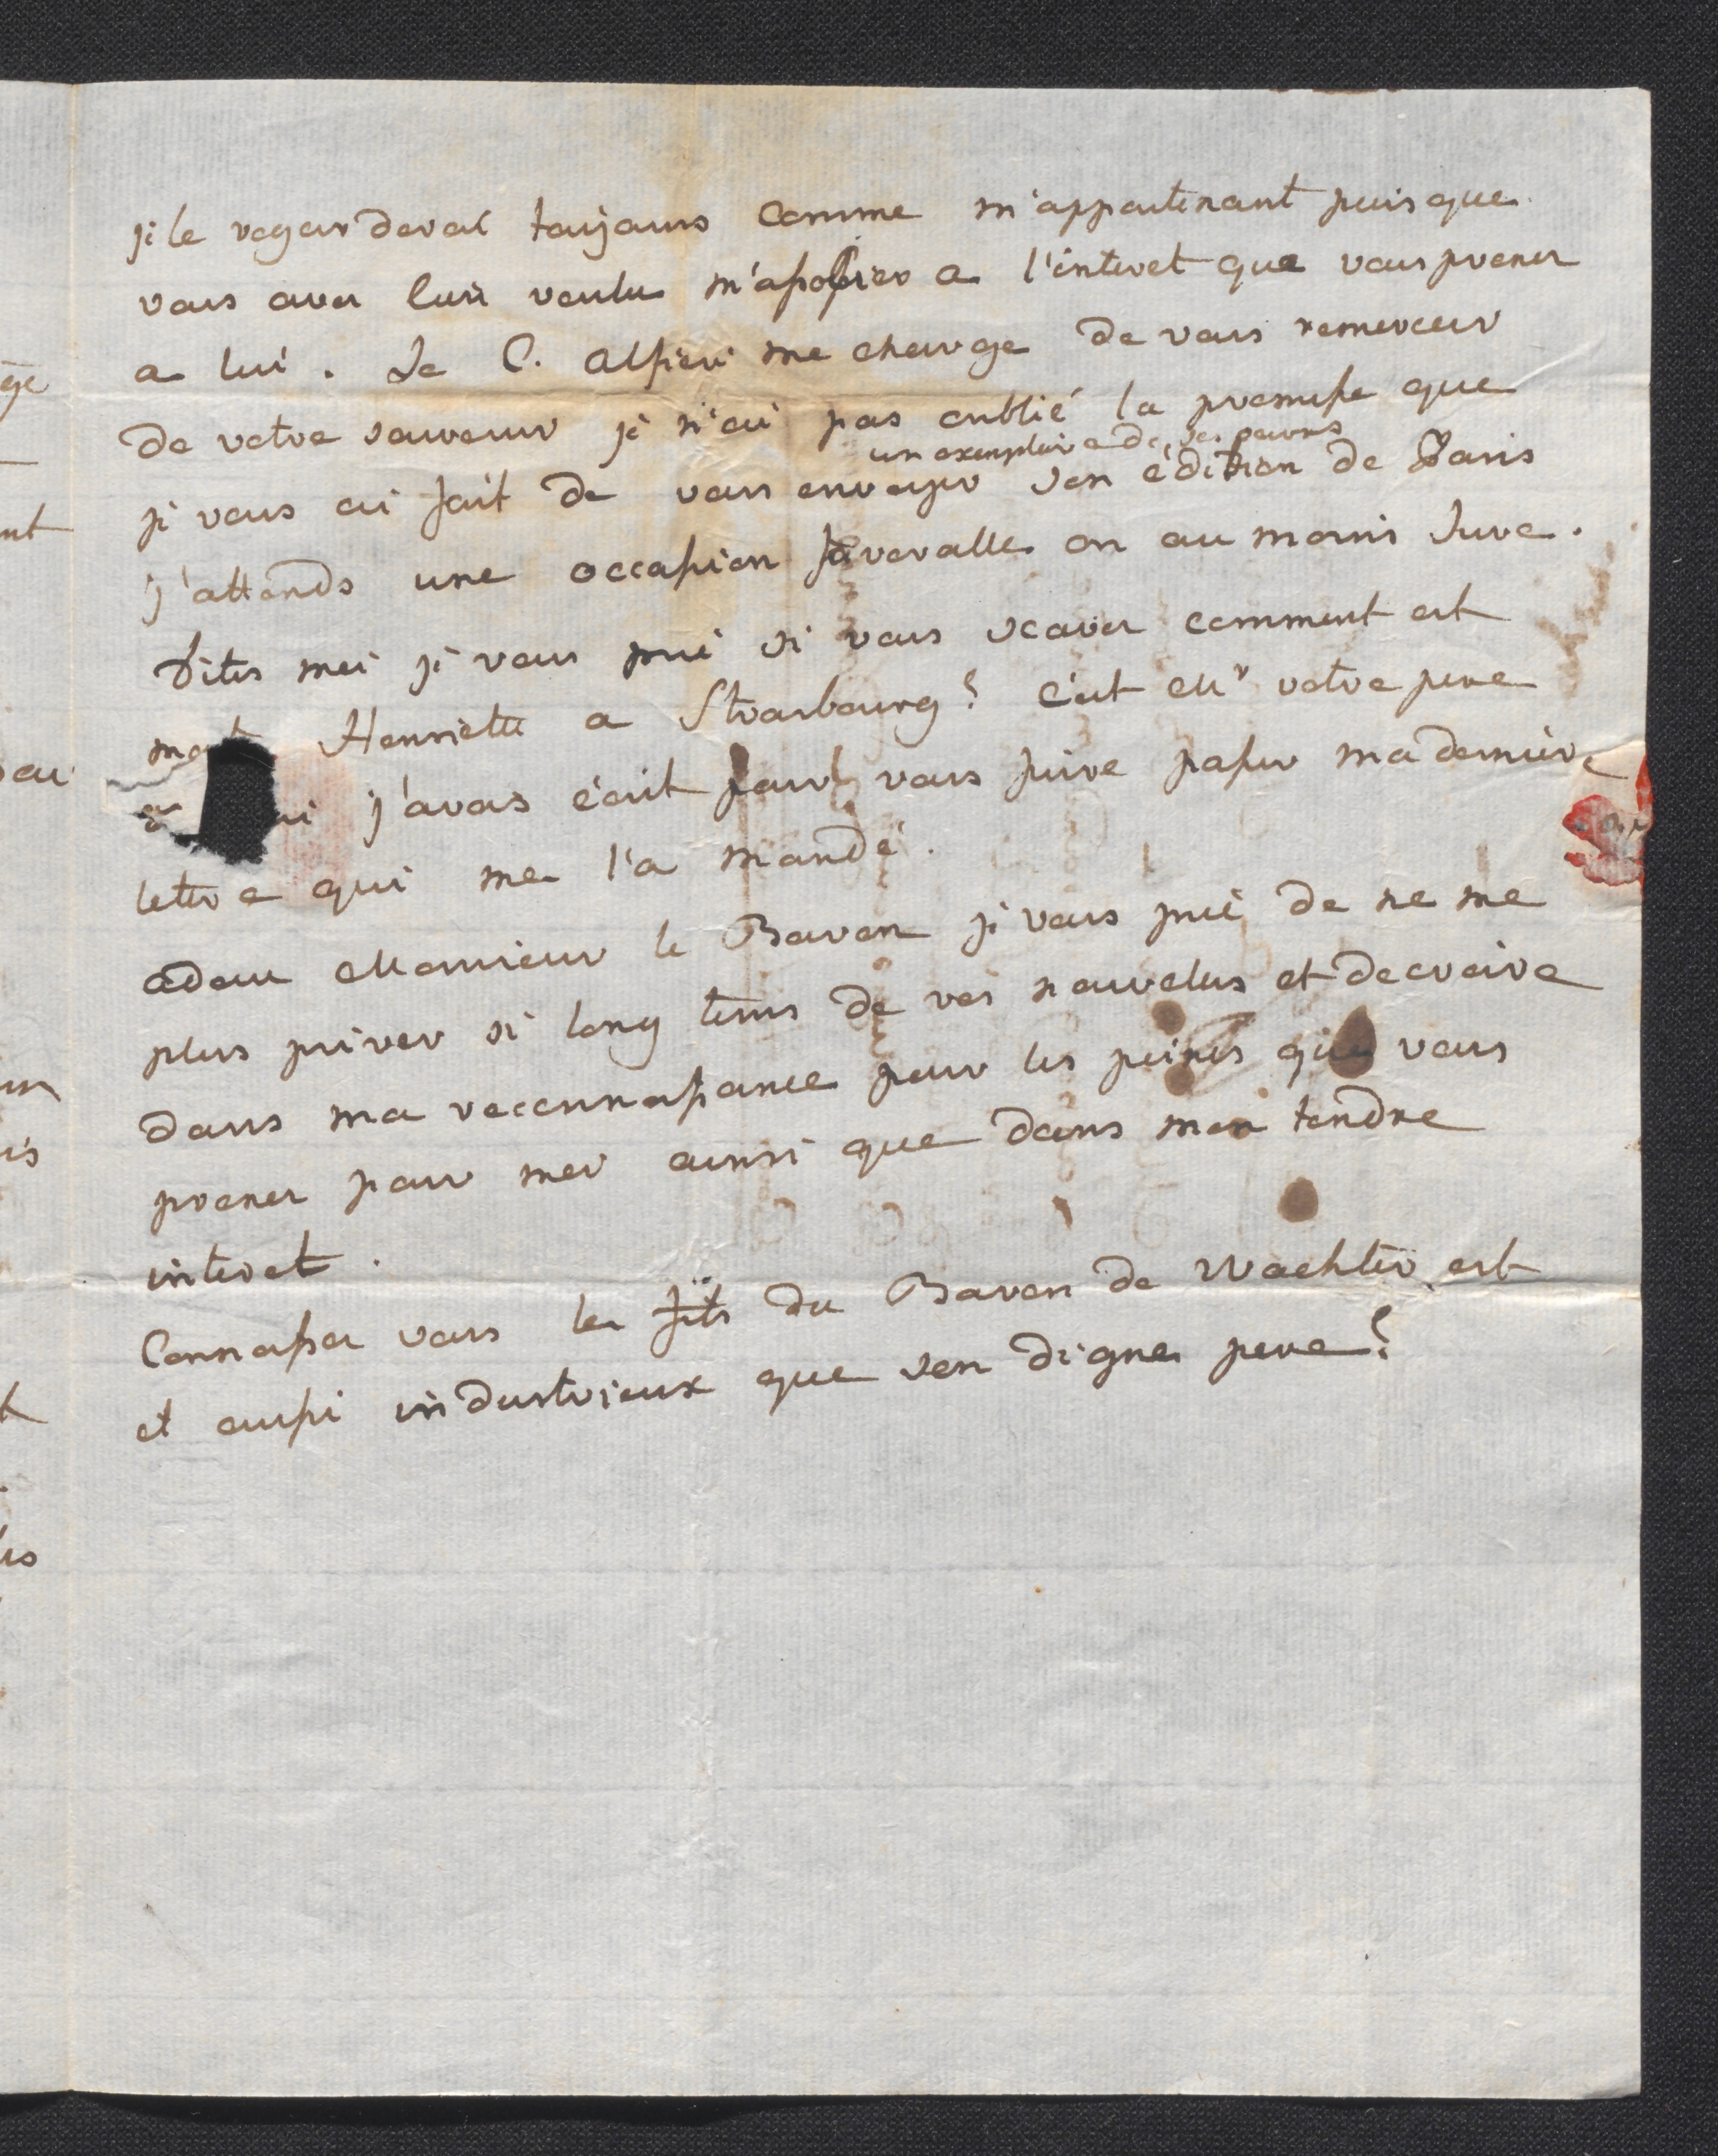 je le regarderai toujours comme m'appartenant puisque
vous avez bien voulu m'associer a l'interet que vous prenez
a lui. Le C. Alfieri me charge de vous remercier
de votre souvenir je n'ai pas oublié la promesse que
un exemplaire de ses œuvres
je vous ai fait de vous envoyer son édition de Paris
j'attends une occasion favoralle ou au moins sure.
Dites moi je vous prie si vous scavez comment est
Henriette a Strasbourg? c'est Mr votre pere
a qui j'avois écrit pour vous faire passer ma derniere
lettre qui me l'a mandé.
adieu Monsieur le Baron je vous prie de ne me
plus priver si long tems de vos nouvelles et de croire
dans ma reconnassance pour les peines que vous
prenez pour moi ainsi que dans mon tendre
interet.
Connassez vous le fils du Baron de Wachter, est
et aussi industrieux que son digne pere?